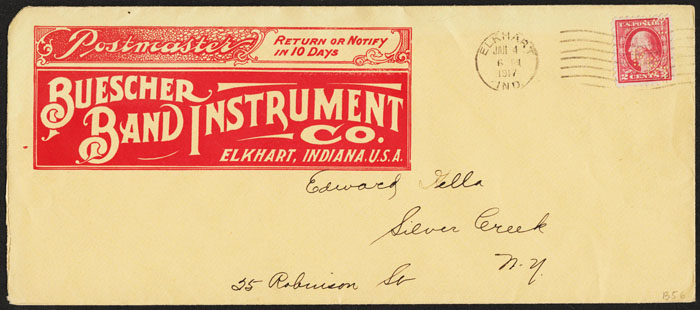 Postmaster
RETURN OR NOTIFY
IN 10 DAYS
BUESCHER
BAND INSTRUMENT
CO.
ELKHART, INDIANA. U.S.A.
ELKHART
JAN 4
1917
IND.
U.S. POSTAGE
2 CENTS 2
Edward Fella
Silver Creek
N.Y.
25 Robinson St
B56